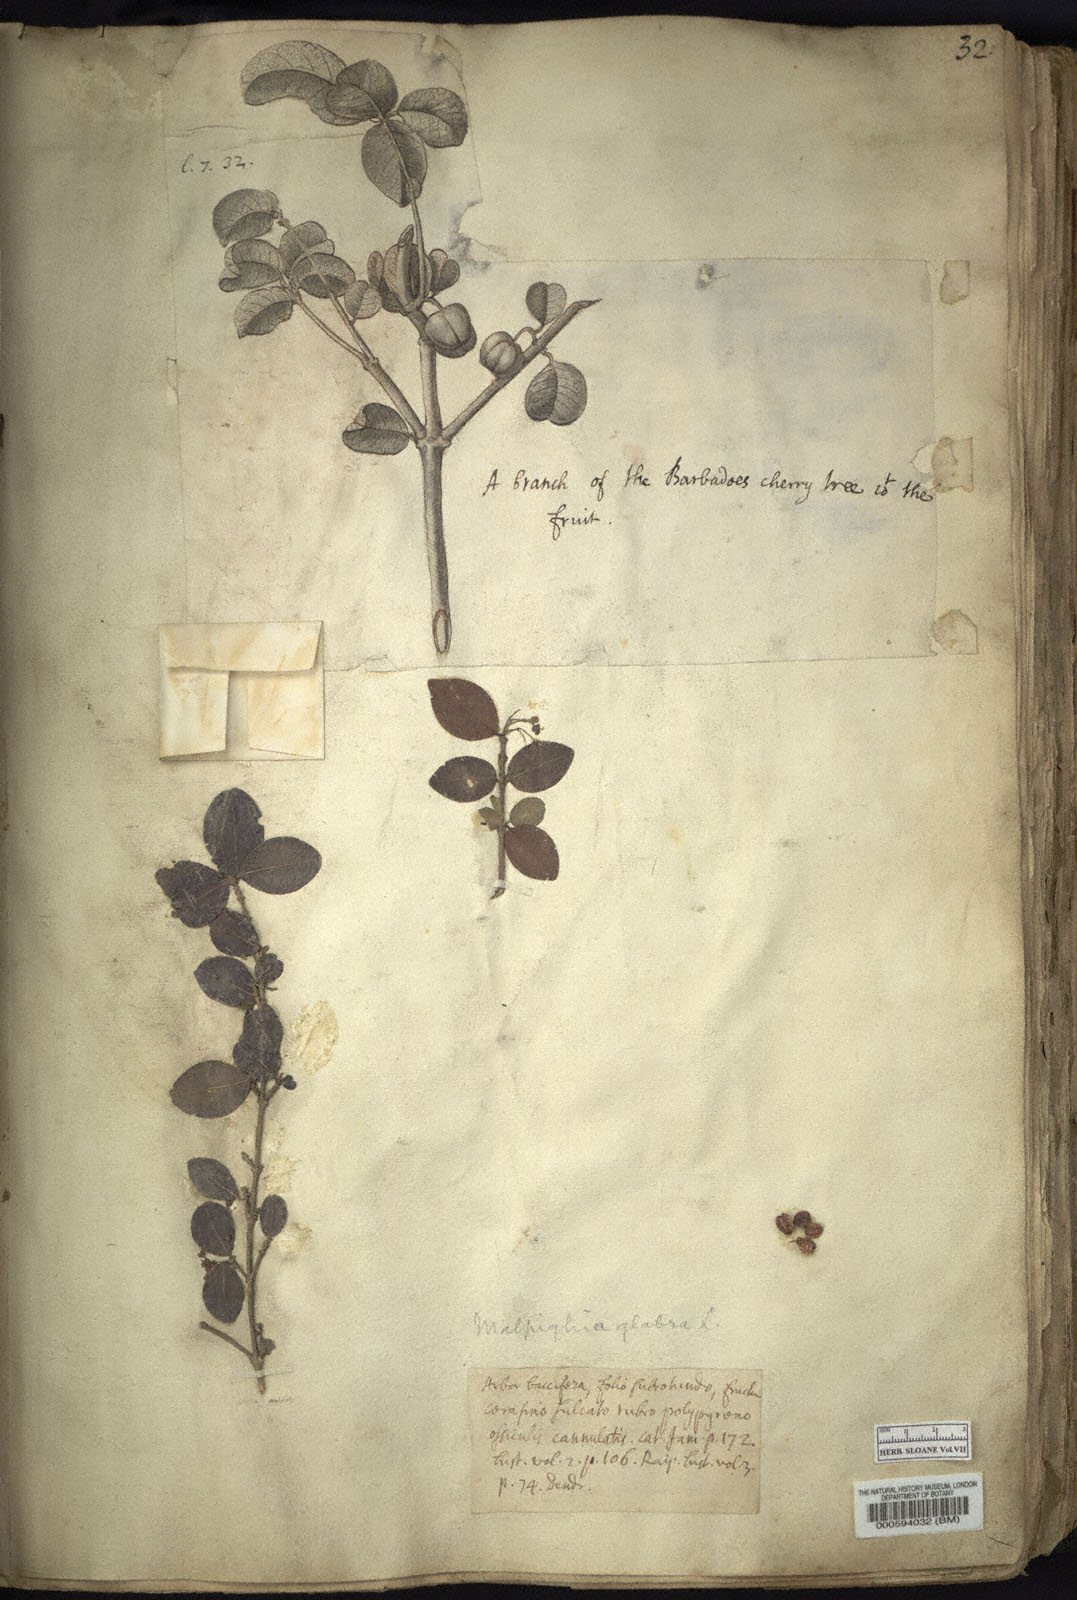 32
l. 7. 32.
A branch of the Barbadoes cherry tree wt the
fruit.
Malpighia glabra L.
Arbor baccifera, folio subrotundo, fructu
cerasino sulcato rubro polypyreno
ossiculis cannulatis. Cat. Jam. p. 172.
hist. vol. 2. p. 106. Raij. hist. vol. 3.
p. 74. Dendr.
HERB. SLOANE Vol. VII
THE NATURAL HISTORY MUSEUM, LONDON
DEPARTMENT OF BOTANY
000594032 (BM)